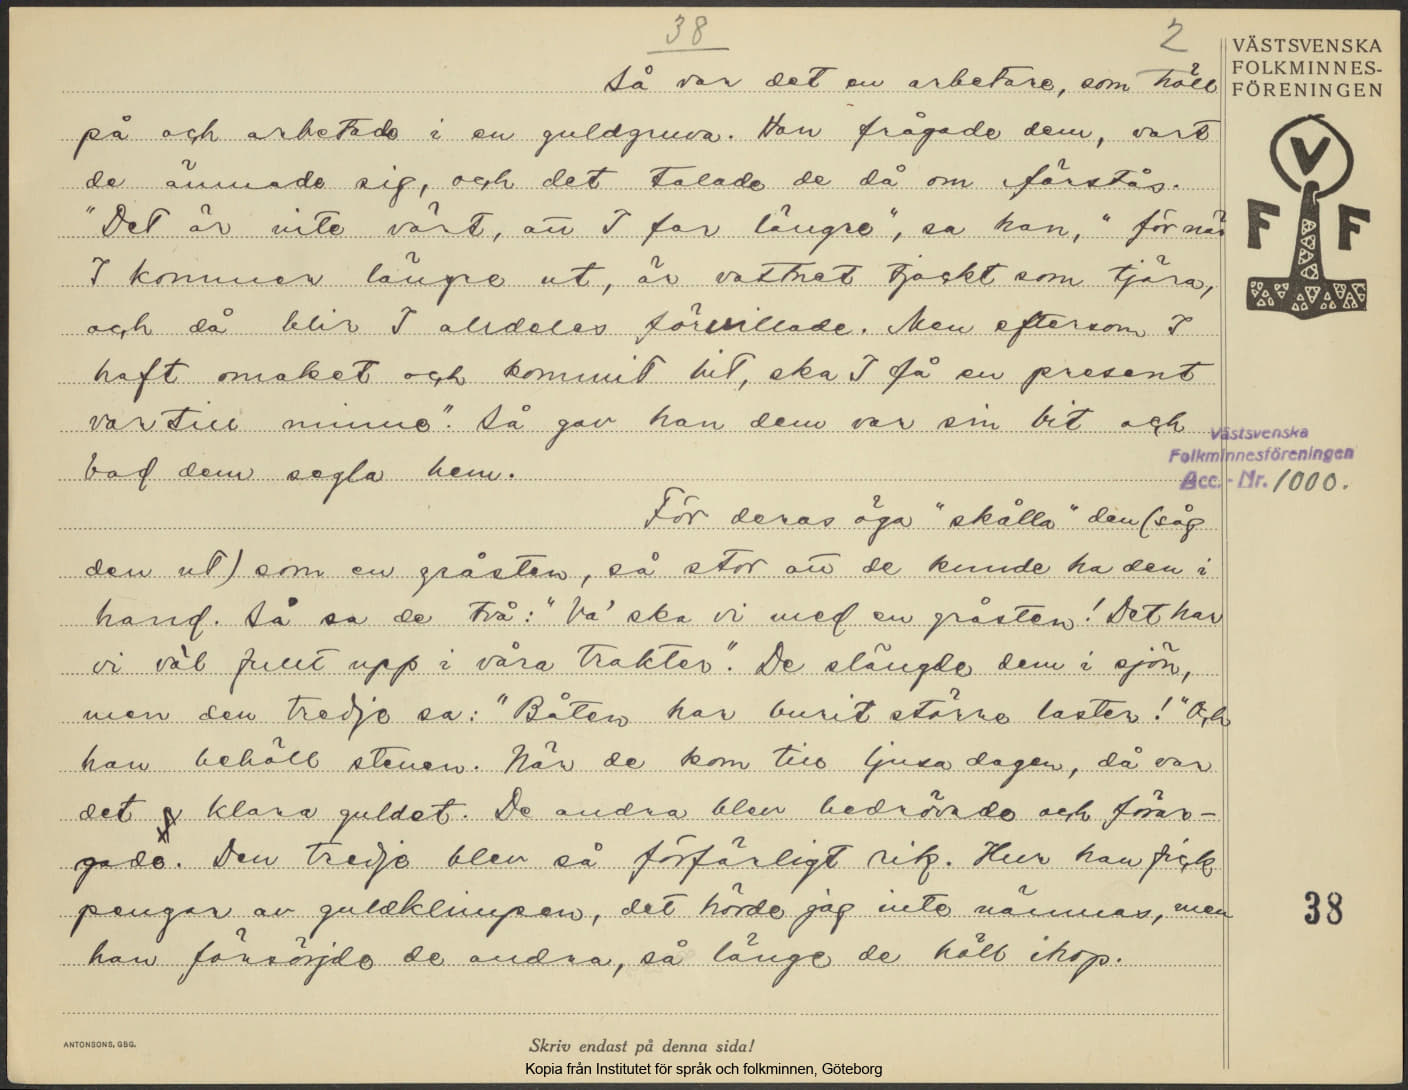 38
2
VÄSTSVENSKA
FOLKMINNES-
FÖRENINGEN
V
F F
Så var det en arbetare, som höll
på och arbetade i en guldgruva. Han frågade dem, vart
de ämnade sig, och det talade de då om förstås.
"Det är inte värt, att I far längre", sa han, "för när
I kommer längre ut, är vattnet tjockt som tjära,
och då blir I alldeles förvillade. Men eftersom I
haft omaket och kommit hit, ska I få en present
var till minne". Så gav han dem var sin bit och
bad dem segla hem.
Västsvenska
Folkminnesföreningen
Acc. - Nr. 1000.
För deras öga "skålla" den (såg
den ut) som en gråsten, så stor att de kunde ha den i
hand. Så sa de två: "Va' ska vi med en gråsten! Det har
vi väl fullt upp i våra trakter". De slängde dem i sjön,
men den tredje sa: "Båten har burit större laster!" Och
han behöll stenen. När de kom till ljusa dagen, då var
det klara guldet. De andra blev bedrövade och förar-
gade. Den tredje blev så förfärligt rik. Hur han fick
pengar av guldklimpen, det hörde jag inte nämnas, men
han försörjde de andra, så länge de höll ihop.
38
ANTONSONS, GBG.
Skriv endast på denna sida!
Kopia från Institutet för språk och folkminnen, Göteborg